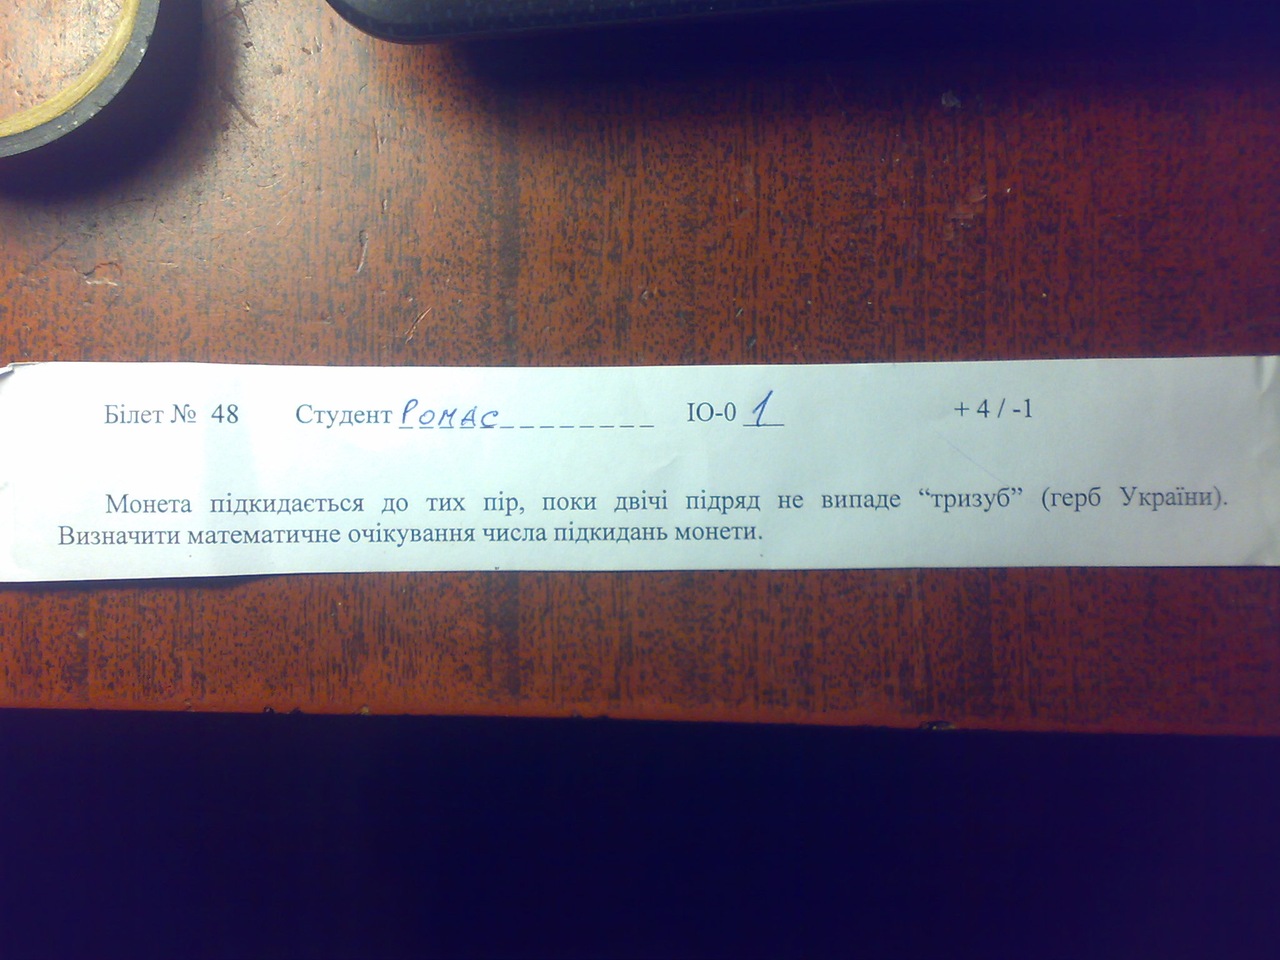 Білет № 48 Студент Ромас ІО-0 1 + 4 / -1
Монета підкидається до тих пір, поки двічі підряд не випаде “тризуб” (герб України).
Визначити математичне очікування числа підкидань монети.